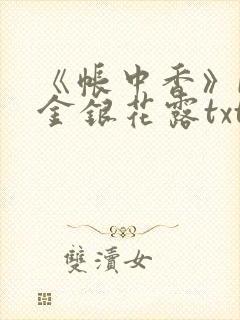 《帐中香》
金银花露txt
雙瀆女